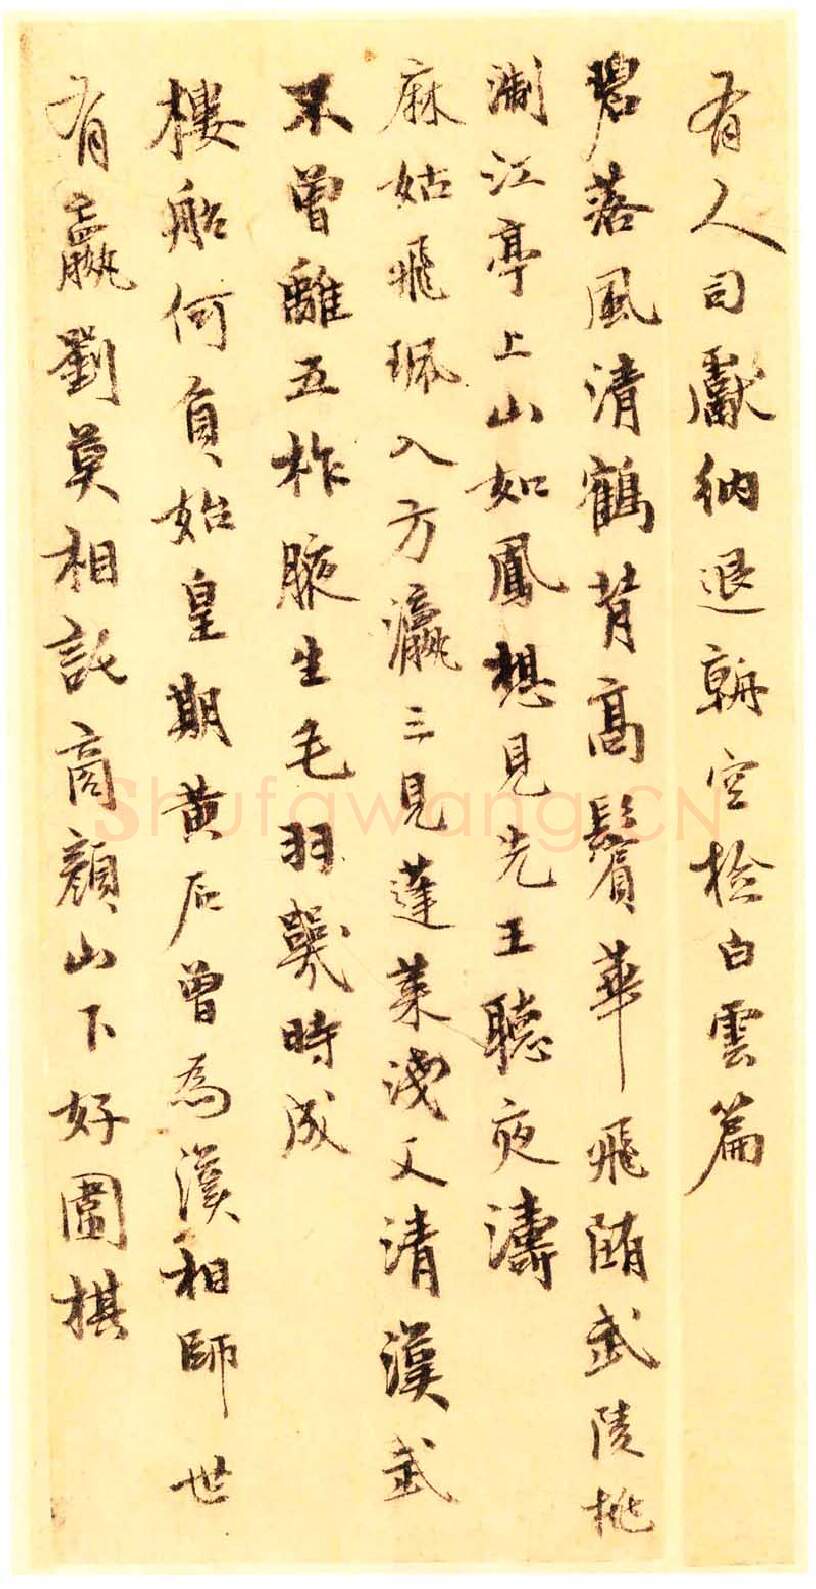 有人司獻納退朝空檢白雲篇
碧落風清鶴背高鬢華飛隨武陵桃
淛江亭上山如鳳想見先王聽夜濤
麻姑飛珮入方瀛三見蓬萊淺又清漢武
不曾離五柞腋生毛羽幾時成
樓船何負始皇期黃石曾為漢相師世
有嬴劉莫相託商顏山下好圍棋
Shufawang.CN